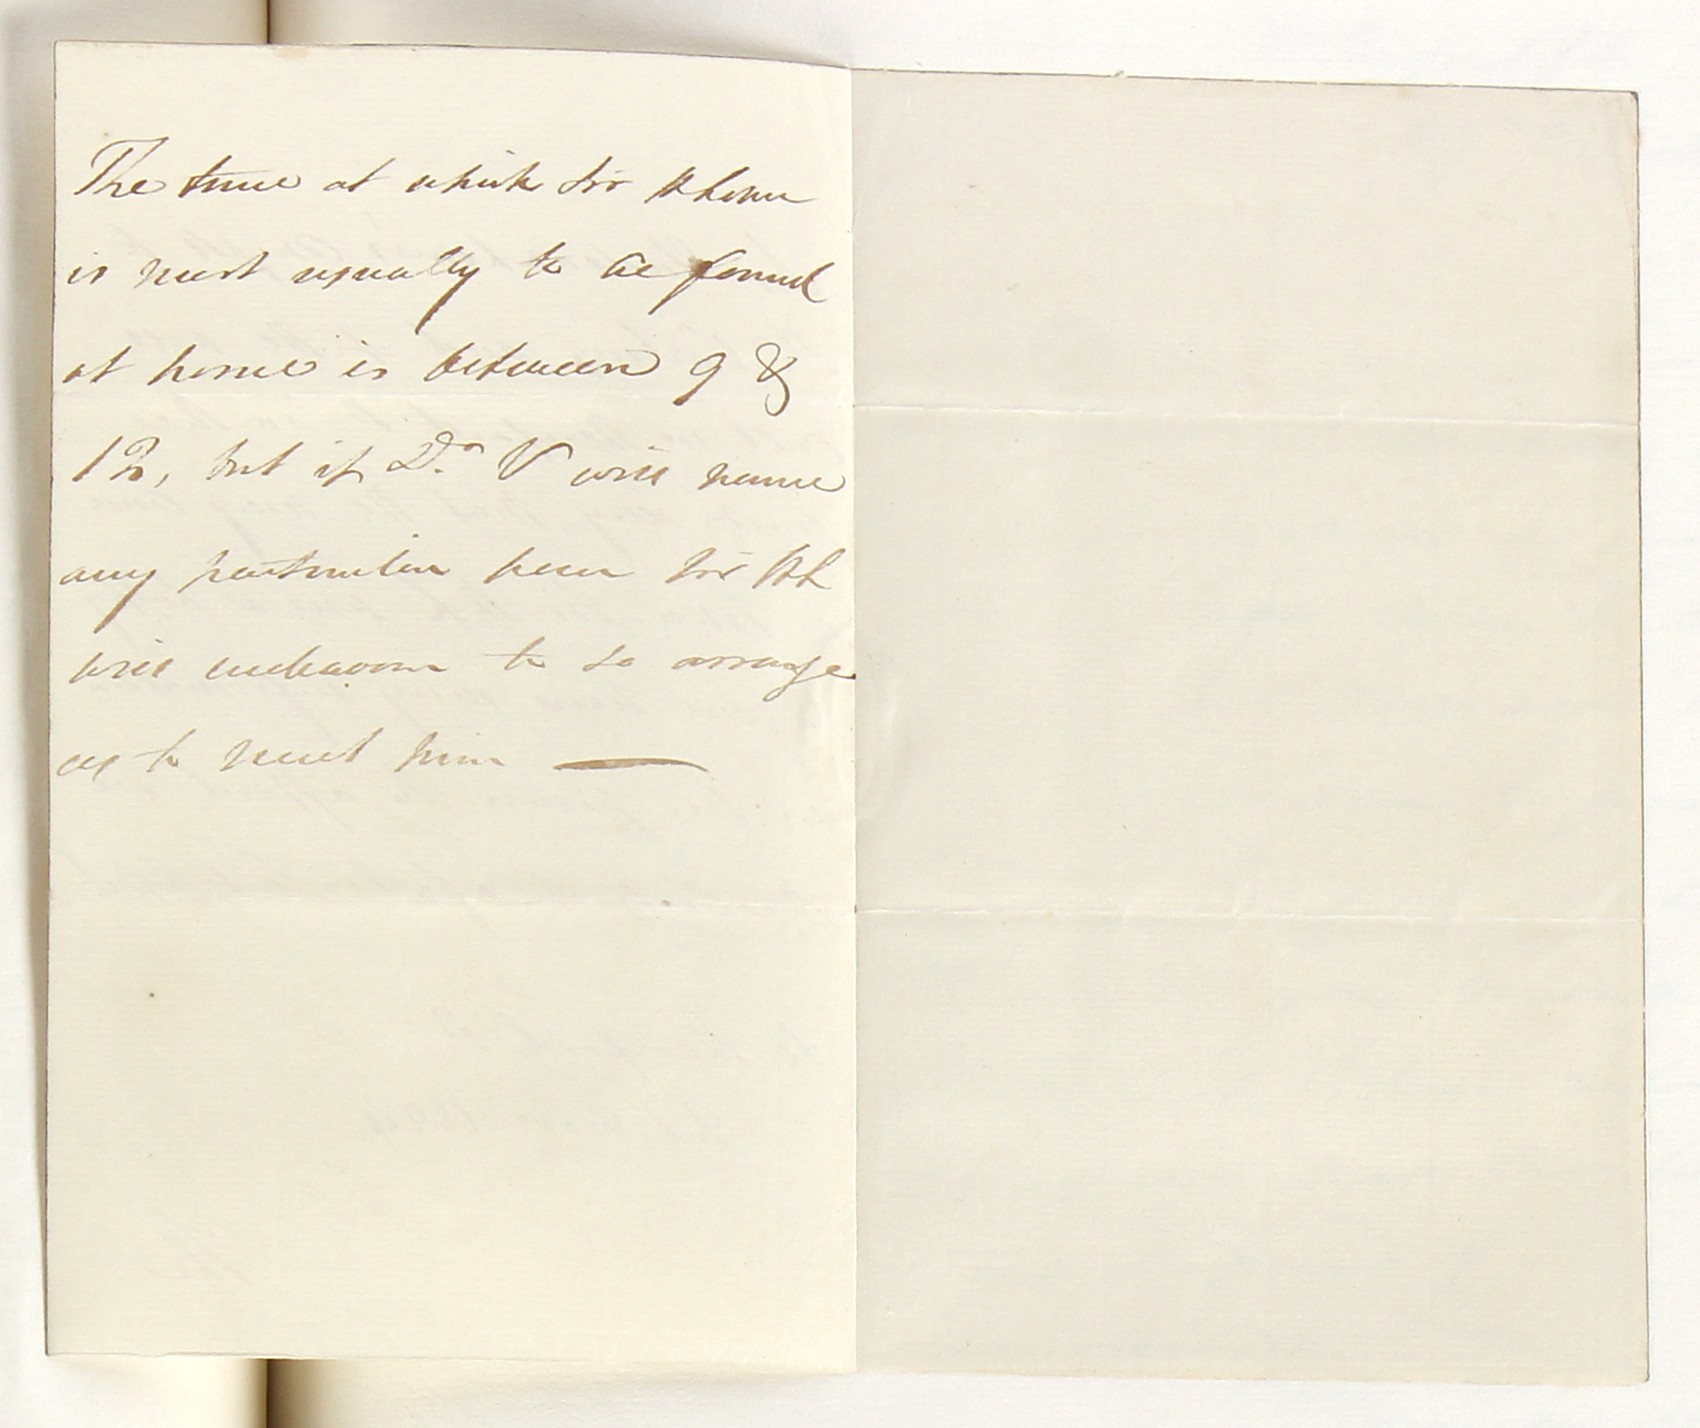 The time at which Sir H Lowe
is most usually to be found
at home is between 9 &
12, but if Dr. V will name
any particular hour Sir HL
will endeavour to so arrange
as to meet him —